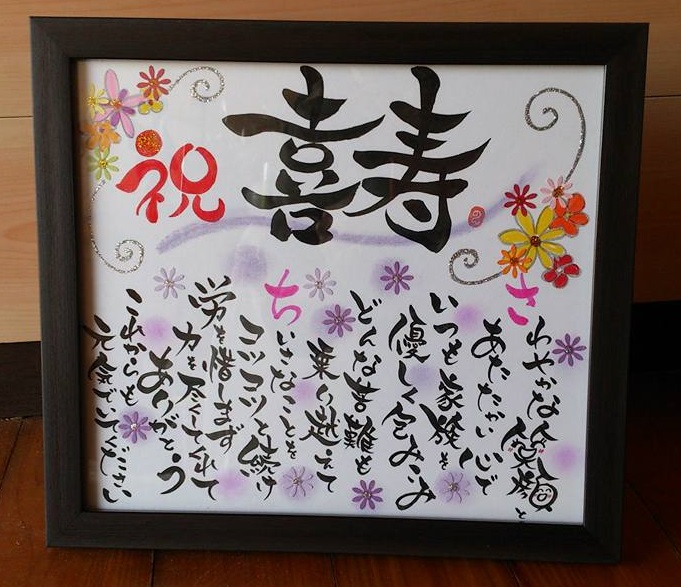 祝
喜寿
さわやかな笑顔と
あたたかい心で
いつも家族を
優しく包みこみ
どんな苦難も
乗り越えて
ちいさなことを
コツコツと続け
労を惜しまず
力を尽くしてくれて
ありがとう
これからも
元気でいてください